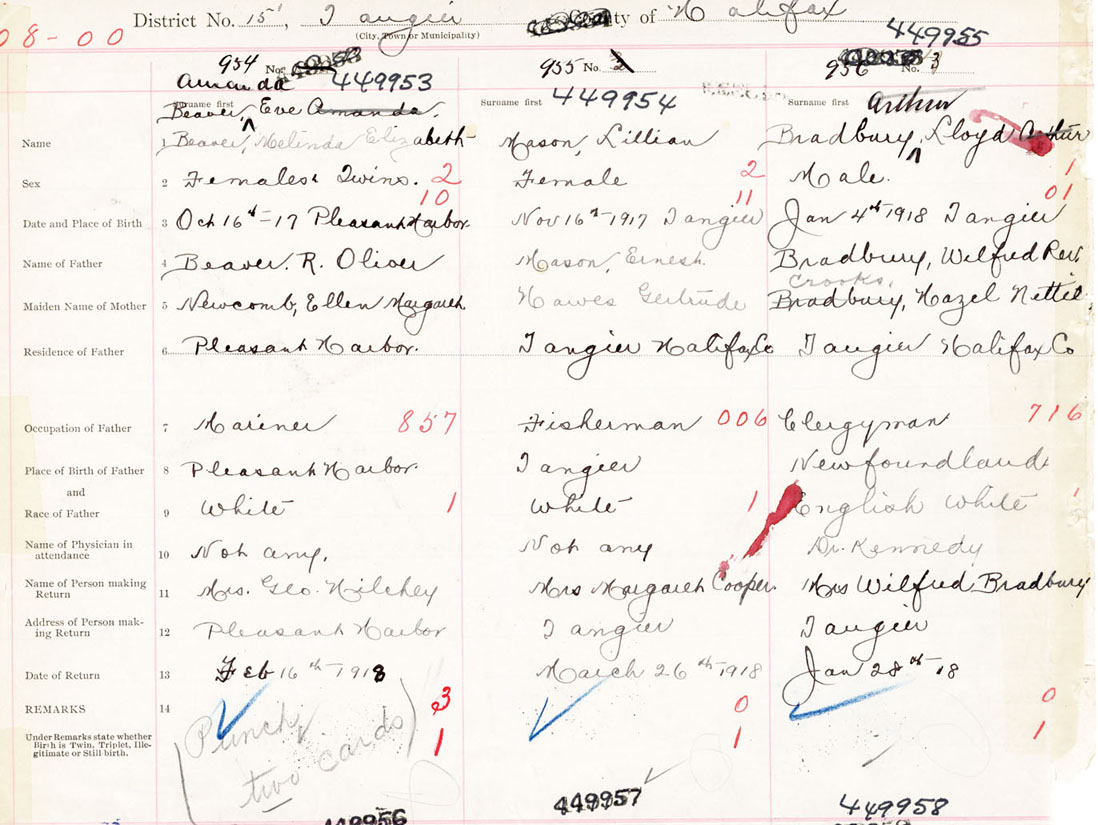 District No. 15, Tangier County of Halifax
(City, Town or Municipality)
08-00
449955
954 No. 449953 955 No. 2 956 No. 3
Amanda 449954
Surname first Surname first Surname first Arthur
Beaver, Eve Amanda,
Name 1 Beaver, Melinda Elizabeth Mason, Lillian Bradbury, Lloyd Arthur
Sex 2 Females Twins. 2 Female 2 Male. 1
10 11 01
Date and Place of Birth 3 Oct 16th-17 Pleasant Harbor. Nov 16th 1917 Tangier Jan 4th 1918 Tangier
Name of Father 4 Beaver. R. Oliver Mason, Ernest. Bradbury, Wilfred Rev
Crooks,
Maiden Name of Mother 5 Newcomb, Ellen Margaret Hawes Gertrude Bradbury, Hazel Nettie
Residence of Father 6 Pleasant Harbor. Tangier Halifax Co Tangier Halifax Co
Occupation of Father 7 Mariner 857 Fisherman 006 Clergyman 716
Place of Birth of Father 8 Pleasant Harbor. Tangier Newfoundland
and
Race of Father 9 White 1 White 1 English White 1
Name of Physician in
attendance 10 Not any. Not any Dr. Kennedy
Name of Person making
Return 11 Mrs. Geo. Hilchey Mrs Margaret Cooper. Mrs Wilfred Bradbury
Address of Person mak-
ing Return 12 Pleasant Harbor Tangier Tangier
Date of Return 13 Feb 16th 1918 March 26th 1918 Jan 28th 18
REMARKS 14 3 0 0
Under Remarks state whether
Birth is Twin, Triplet, Ille-
gitimate or Still-birth. 1 1 1
(Punch
two cards)
449956 449957 449958